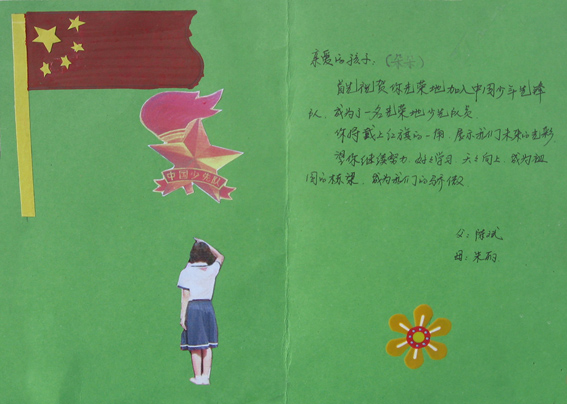 中国少年队
亲爱的孩子：（朵朵）
首先祝贺你光荣地加入中国少年先锋
队，成为了一名光荣地少先队员
你将戴上红旗的一角，展示我们未来的光彩
望你继续努力，好好学习，天天向上，成为祖
国的栋梁，成为我们的骄傲
父：陈斌
母：朱莉